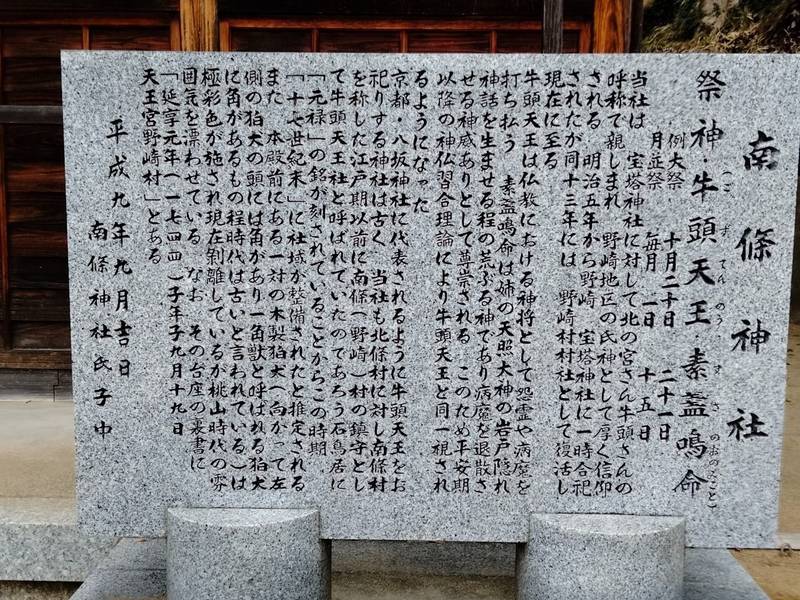 南條神社
祭神・牛頭天王・素盞鳴命
(ごずてんのう・すさのおのみこと)
例大祭 十月二十日 二十一日
月並祭 毎月 一日 十五日
当社は 宝塔神社に対して北の宮さん牛頭さんの
呼称で親しまれ 野崎地区の氏神として厚く信仰
される 明治五年から野崎 宝塔神社に一時合祀
されたが同十三年には 野崎村村社として復活し
現在に至る
牛頭天王は仏教における神将として怨霊や病魔を
打ち払う 素盞鳴命は姉の天照大神の岩戸隠れ
神話を生ませる程の荒ぶる神であり病魔を退散さ
せる神威ありとして尊崇される このため平安期
以降の神仏習合理論により牛頭天王と同一視され
るようになった
京都・八坂神社に代表されるように牛頭天王をお
祀りする神社は古く 当社も北條村に対し南條村
を称した江戸期以前に南條(野崎)村の鎮守とし
て牛頭天王社と呼ばれていたのであろう石鳥居に
「元禄」の銘が刻まれていることからこの時期
「十七世紀末」に社域が整備されたと推定される
また 本殿前にある一対の木製狛犬(向かって左
側の狛犬の頭には角があり一角獣と呼ばれる狛犬
に角があるもの程時代は古いと言われている)は
極彩色が施され現在剥離しているが桃山時代の雰
囲気を漂わせている なお その台座の裏書に
「延享元年(一七四四)子年子九月十九日
天王宮野崎村」とある
平成九年九月吉日
南條神社氏子中